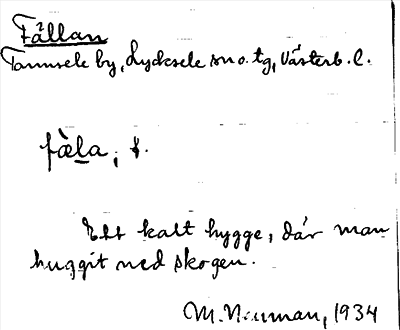 Fällan
Tannsele by, Lycksele sn o. tg, Västerb. l.
fæ̀la, f.
Ett kalt hygge, där man
huggit ned skogen.
M. Neuman, 1934